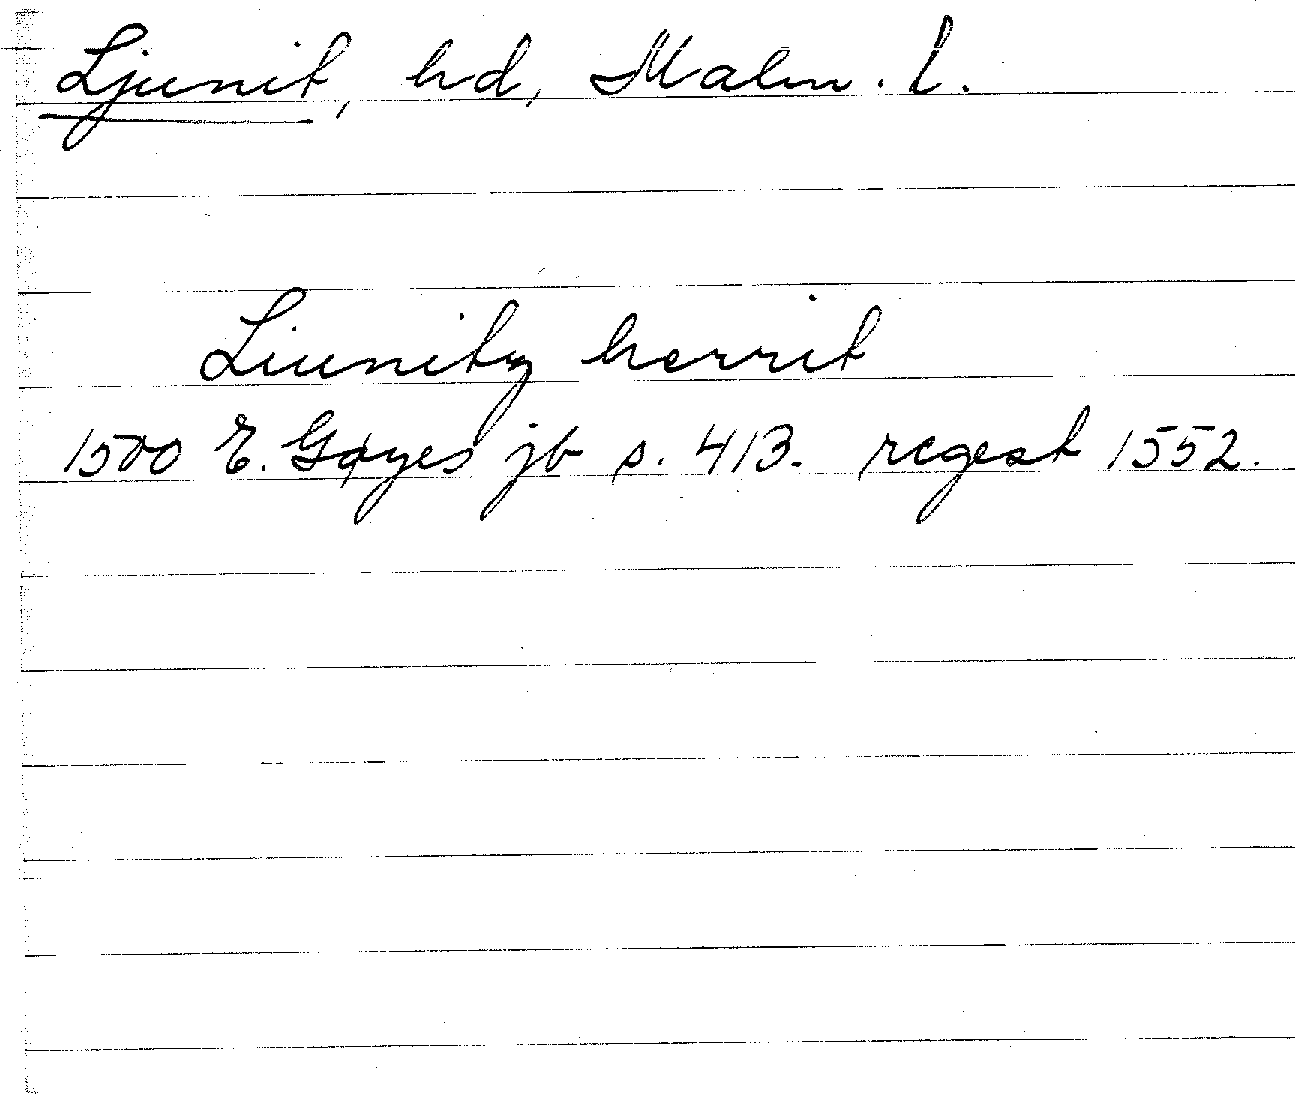 Ljunit, hd, Malm. l.
Liunitz herrit
1500 E. Gøyes jb s. 413. regest 1552.